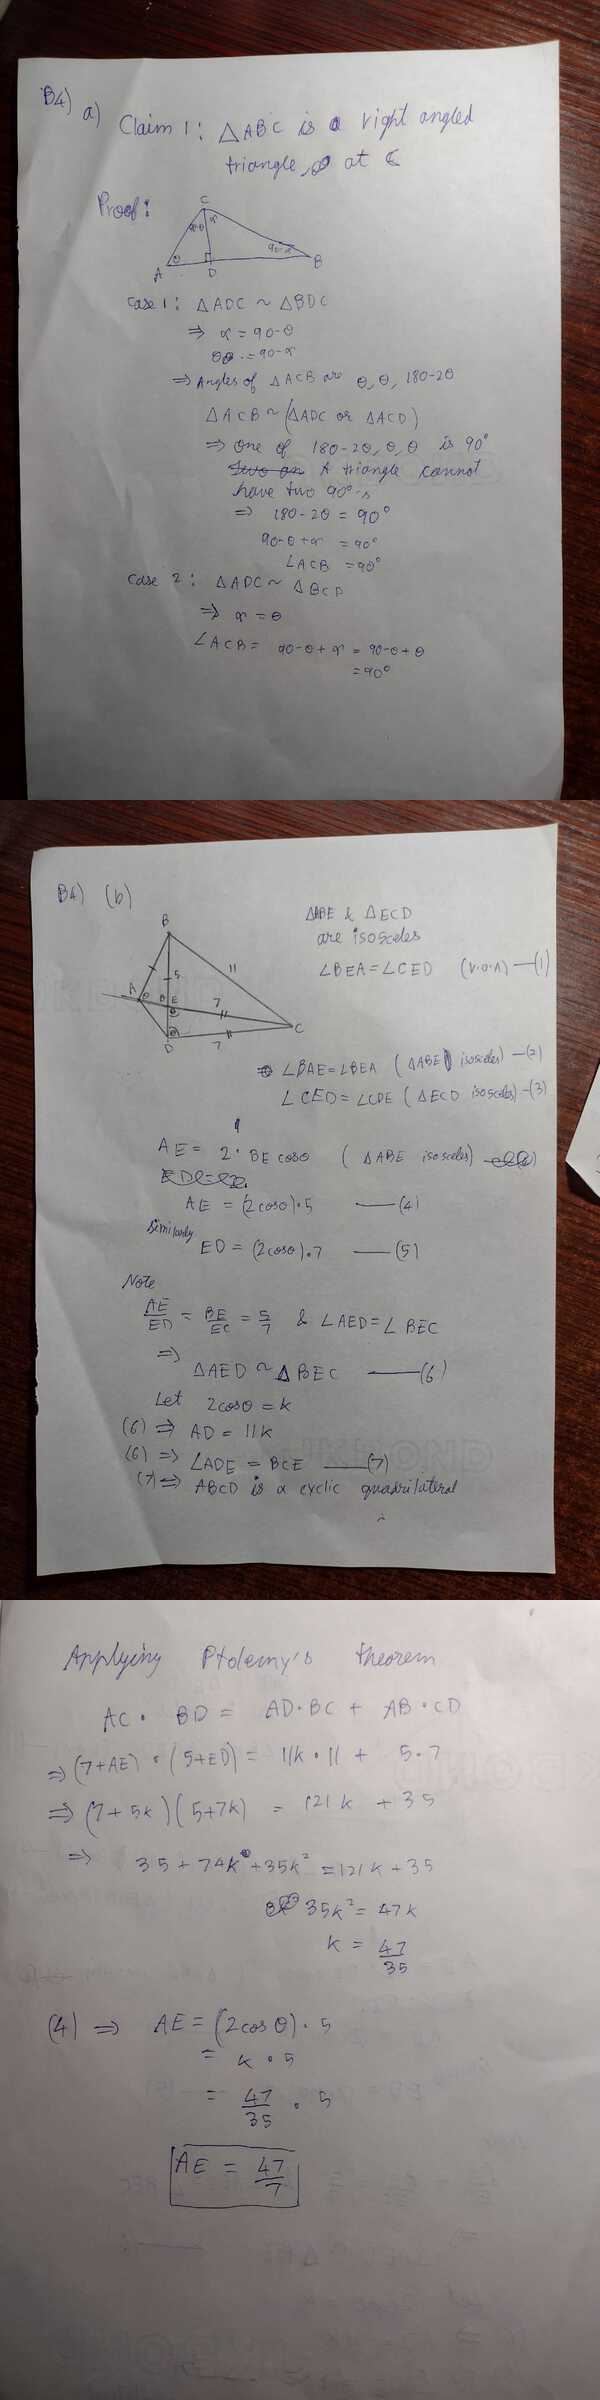 B4) a) Claim 1: △ABC is a right angled
triangle, at C
Proof:
C
90-θ α
θ 90-α
A D B
Case 1: △ADC ~ △BDC
⇒ α = 90-θ
θ = 90-α
⇒ Angles of △ACB are θ, θ, 180-2θ
△ACB ~ (△ADC or △ACD)
⇒ One of 180-2θ, θ, θ is 90°
A triangle cannot
have two 90°-s
⇒ 180-2θ = 90°
90-θ+α = 90°
∠ACB = 90°
Case 2: △ADC ~ △BCD
⇒ α = θ
∠ACB = 90-θ+α = 90-θ+θ
= 90°
B4) (b)
△ABE & △ECD
are isosceles
∠BEA = ∠CED (V.O.A) —(1)
B
5 11
A θ θ E 7
θ
θ C
D 7
∠BAE = ∠BEA (△ABE isosceles) —(2)
∠CED = ∠CDE (△ECD isosceles) —(3)
AE = 2·BE cosθ (△ABE isosceles)
AE = (2cosθ)·5 —(4)
Similarly
ED = (2cosθ)·7 —(5)
Note
AE/ED = BE/EC = 5/7 & ∠AED = ∠BEC
⇒
△AED ~ △BEC —(6)
Let 2cosθ = k
(6) ⇒ AD = 11k
(6) ⇒ ∠ADE = BCE —(7)
(7) ⇒ ABCD is a cyclic quadrilateral
Applying Ptolemy's theorem
AC · BD = AD·BC + AB·CD
⇒ (7+AE)·(5+ED) = 11k·11 + 5·7
⇒ (7+5k)(5+7k) = 121k + 35
⇒ 35+74k+35k² = 121k+35
35k² = 47k
k = 47/35
(4) ⇒ AE = (2cosθ)·5
= k·5
= 47/35 · 5
AE = 47/7